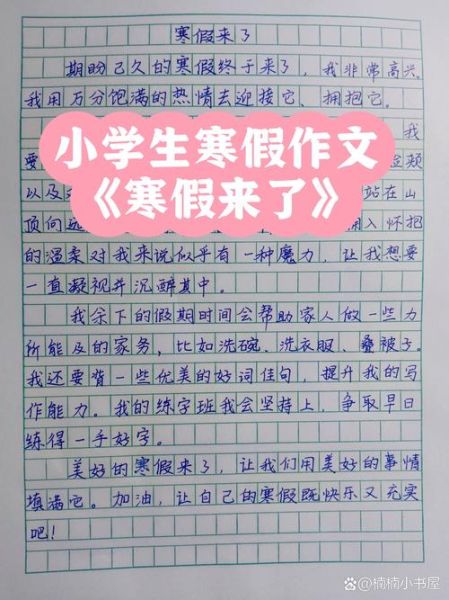 寒假来了
期盼已久的寒假终于来了，我非常高兴。
我用万分饱满的热情去迎接它、拥抱它。
我
要
小学生寒假作文
《寒假来了》
以及
站在山
顶向
入怀抱
的温柔对我来说似乎有一种魔力，让我想要
一直凝视并沉醉其中。
我余下的假期时间会帮助家人做一些力
所能及的家务，比如洗碗、洗衣服、叠被子。
我还要背一些优美的好词佳句，提升我的写
作能力。我的练字班我会坚持上，争取早日
练得一手好字。
美好的寒假来了，让我们用美好的事情
填满它。加油，让自己的寒假既快乐又充实
吧！
@楠楠小书屋